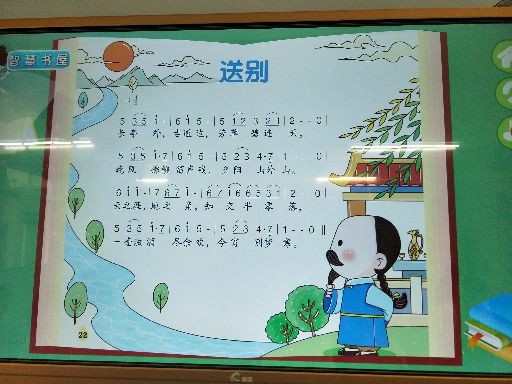 智慧书屋
送别
5 3 5 i · | 6 i 5 · | 5 1 2 3 2 1 | 2 - - 0 |
长亭 外，古道边，芳草 碧连 天。
5 3 5 i · 7 | 6 i 5 · | 5 2 3 4 · 7 | 1 - - 0 |
晚风 拂柳笛声残，夕阳 山外山。
天之涯，地之 角，知 交 半 零 落，
5 3 5 i · 7 | 6 i 5 · | 5 2 3 4 · 7 | 1 - - 0 ‖
一壶浊酒 尽余欢，今宵 别梦 寒。
22